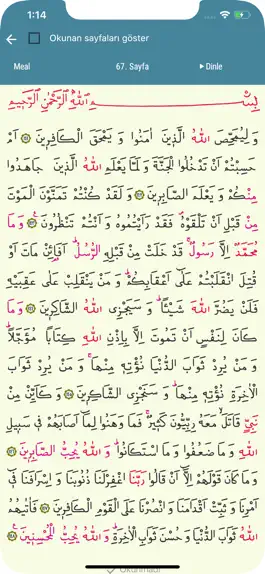 1:14
Okunan sayfaları göster
Meal 67. Sayfa Dinle
بِسْمِ اللّٰهِ الرَّحْمٰنِ الرَّح۪يمِ
وَلِيُمَحِّصَ اللّٰهُ الَّذ۪ينَ اٰمَنُوا وَيَمْحَقَ الْكَافِر۪ينَ ﴿١٤١﴾ اَمْ
حَسِبْتُمْ اَنْ تَدْخُلُوا الْجَنَّةَ وَلَمَّا يَعْلَمِ اللّٰهُ الَّذ۪ينَ جَاهَدُوا
مِنْكُمْ وَيَعْلَمَ الصَّابِر۪ينَ ﴿١٤٢﴾ وَلَقَدْ كُنْتُمْ تَمَنَّوْنَ الْمَوْتَ
مِنْ قَبْلِ اَنْ تَلْقَوْهُۖ فَقَدْ رَاَيْتُمُوهُ وَاَنْتُمْ تَنْظُرُونَ۟ ﴿١٤٣﴾ وَمَا
مُحَمَّدٌ اِلَّا رَسُولٌۚ قَدْ خَلَتْ مِنْ قَبْلِهِ الرُّسُلُۜ اَفَا۬ئِنْ مَاتَ اَوْ
قُتِلَ انْقَلَبْتُمْ عَلٰٓى اَعْقَابِكُمْۜ وَمَنْ يَنْقَلِبْ عَلٰى عَقِبَيْهِ
فَلَنْ يَضُرَّ اللّٰهَ شَيْـًٔاۜ وَسَيَجْزِي اللّٰهُ الشَّاكِر۪ينَ ﴿١٤٤﴾ وَمَا
كَانَ لِنَفْسٍ اَنْ تَمُوتَ اِلَّا بِاِذْنِ اللّٰهِ كِتَابًا مُؤَجَّلًاۜ
وَمَنْ يُرِدْ ثَوَابَ الدُّنْيَا نُؤْتِه۪ مِنْهَاۚ وَمَنْ يُرِدْ ثَوَابَ
الْاٰخِرَةِ نُؤْتِه۪ مِنْهَاۜ وَسَنَجْزِي الشَّاكِر۪ينَ ﴿١٤٥﴾ وَكَاَيِّنْ مِنْ
نَبِيٍّ قَاتَلَۙ مَعَهُ رِبِّيُّونَ كَث۪يرٌۚ فَمَا وَهَنُوا لِمَٓا اَصَابَهُمْ ف۪ي سَب۪يلِ
اللّٰهِ وَمَا ضَعُفُوا وَمَا اسْتَكَانُواۜ وَاللّٰهُ يُحِبُّ الصَّابِر۪ينَ ﴿١٤٦﴾
وَمَا كَانَ قَوْلَهُمْ اِلَّٓا اَنْ قَالُوا رَبَّنَا اغْفِرْ لَنَا ذُنُوبَنَا وَاِسْرَافَنَا ف۪ٓي
اَمْرِنَا وَثَبِّتْ اَقْدَامَنَا وَانْصُرْنَا عَلَى الْقَوْمِ الْكَافِر۪ينَ ﴿١٤٧﴾ فَاٰتٰيهُمُ
اللّٰهُ ثَوَابَ الدُّنْيَا وَحُسْنَ ثَوَابِ الْاٰخِرَةِۜ وَاللّٰهُ يُحِبُّ الْمُحْسِن۪ينَ۟ ﴿١٤٨﴾
Okunmadı